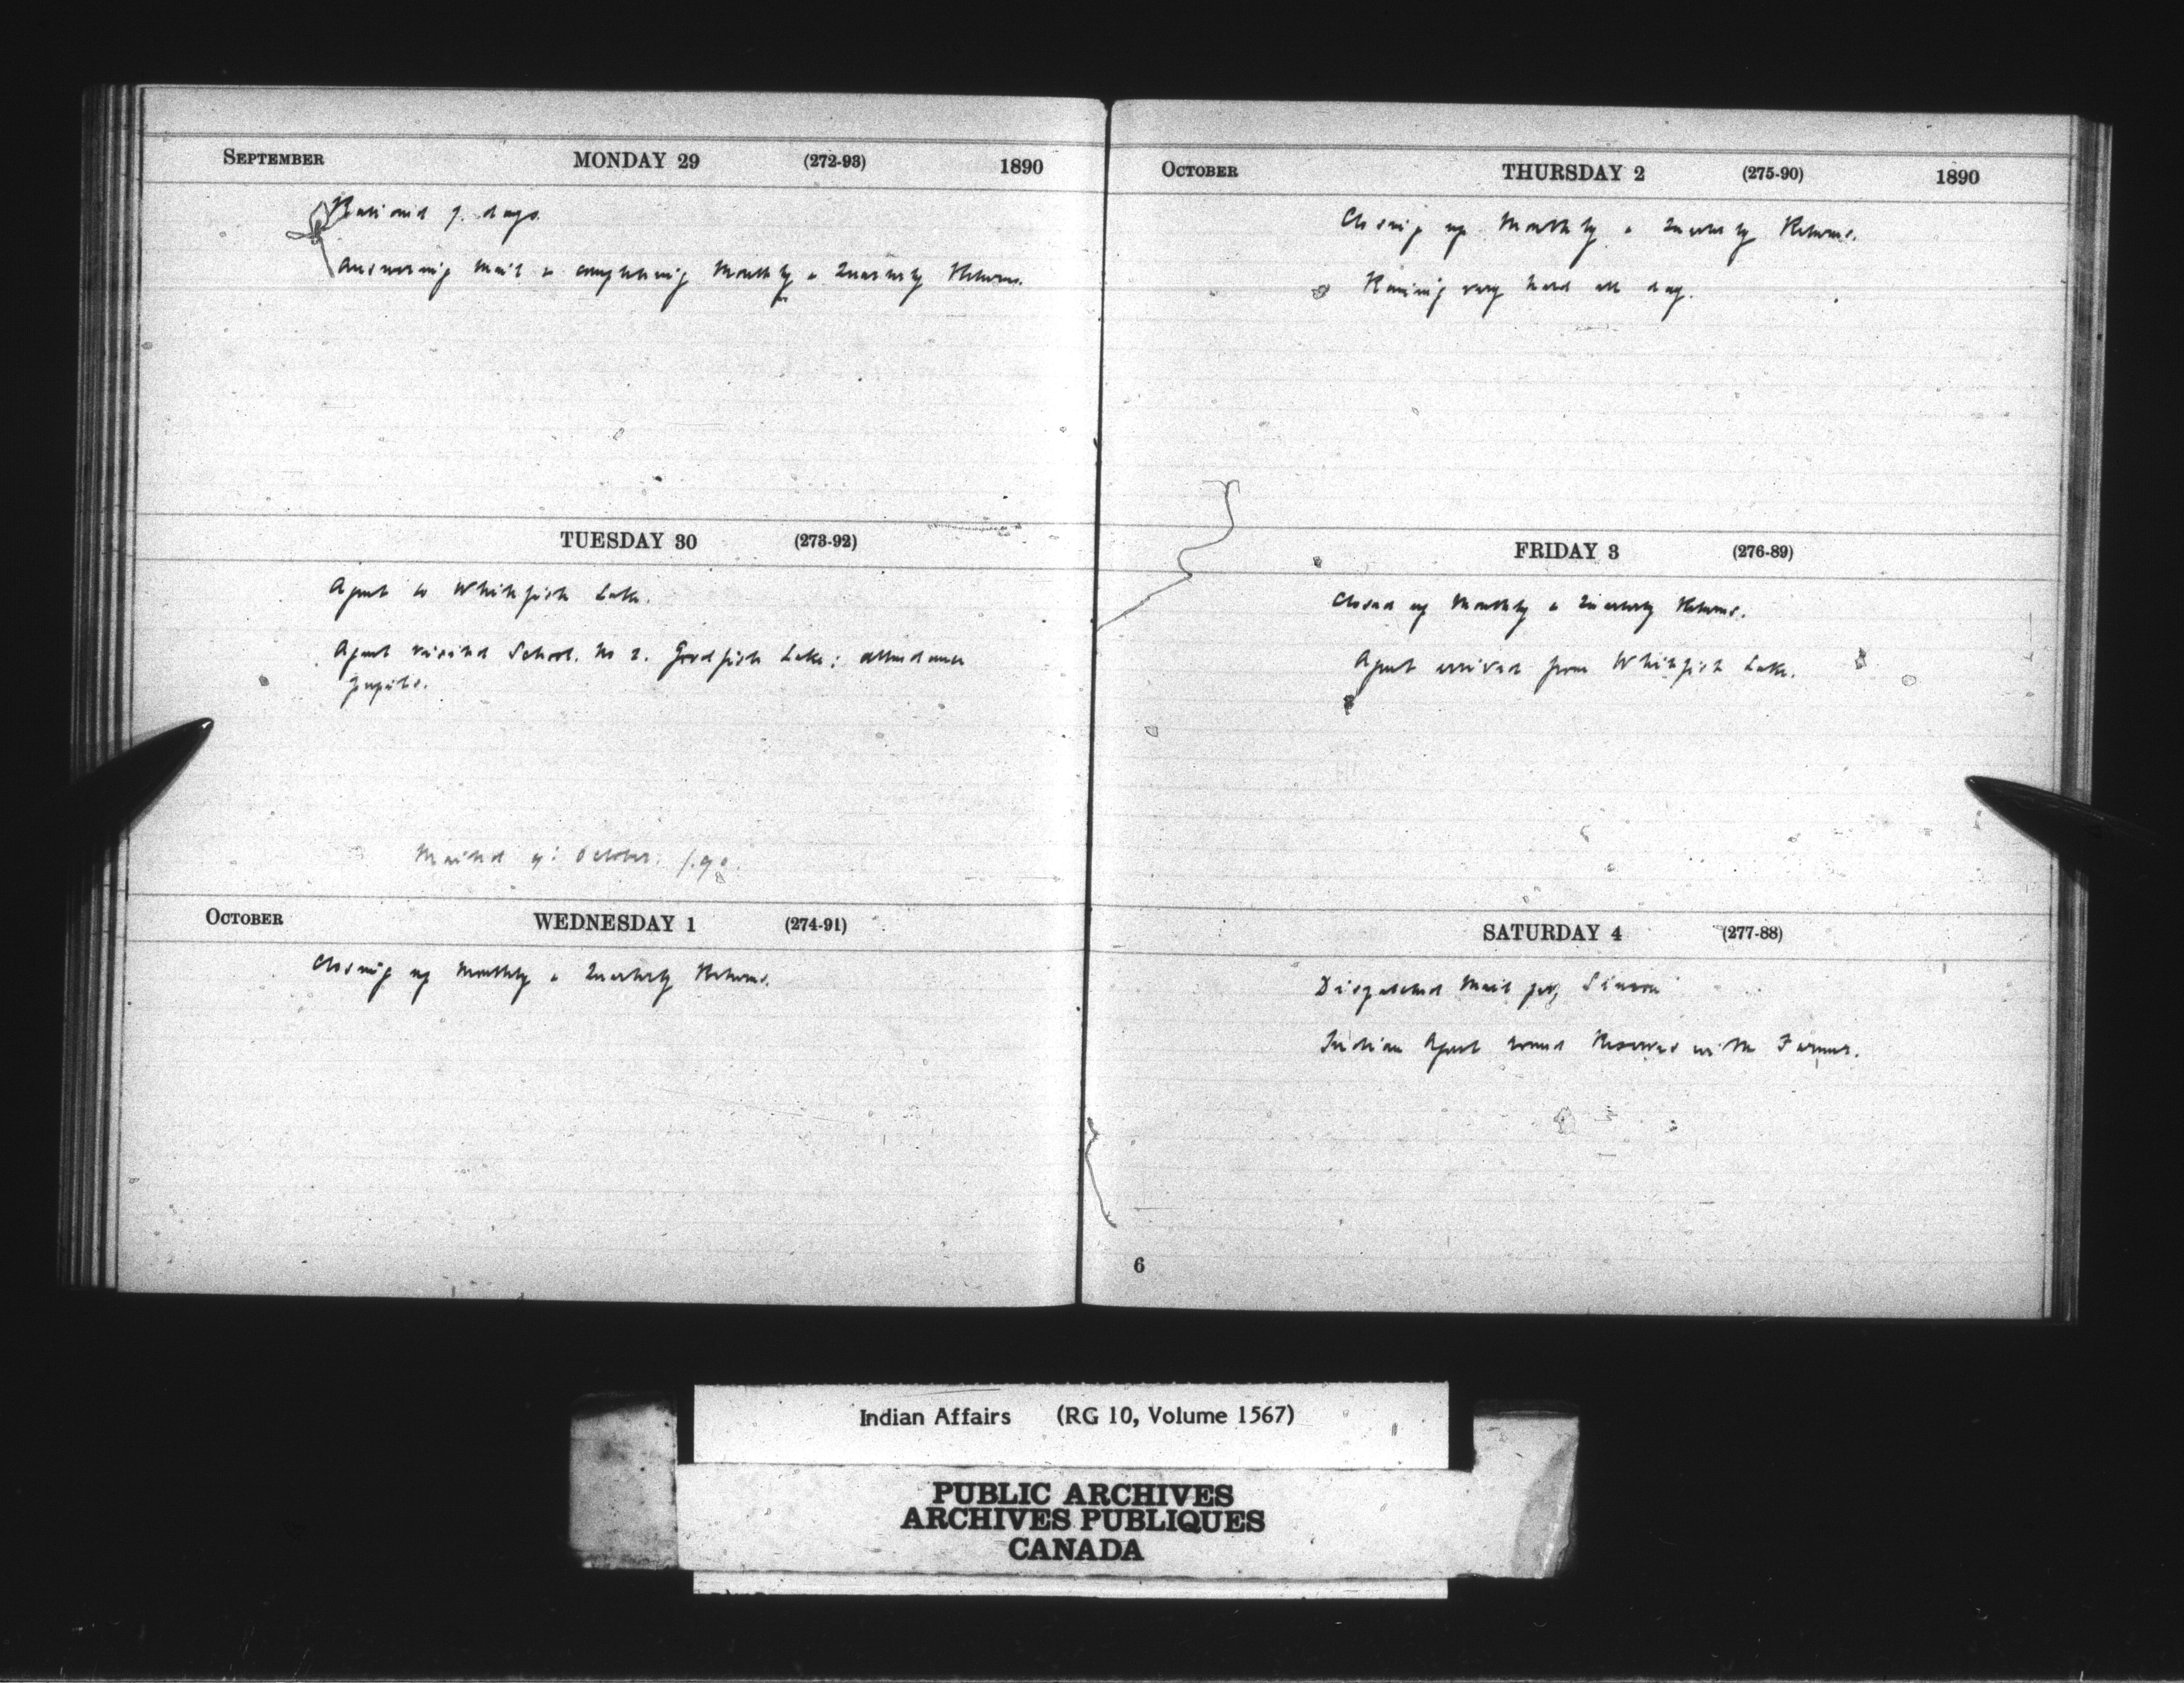 SEPTEMBER MONDAY 29 (272-93) 1890
Rationed 7. days.
Answering mail & completing Monthly & Quarterly Returns.
TUESDAY 30 (273-92)
Agent to Whitefish Lake.
Agent visited School. No 2. Goodfish Lake; attendance
pupils.
Mailed 4: October: /.90.
OCTOBER WEDNESDAY 1 (274-91)
Closing up Monthly & Quarterly Returns.
OCTOBER THURSDAY 2 (275-90) 1890
Closing up Monthly & Quarterly Returns.
Raining very hard all day.
FRIDAY 3 (276-89)
Closed up Monthly & Quarterly Returns.
Agent arrived from Whitefish Lake.
SATURDAY 4 (277-88)
Dispatched Mail per, Simson
Indian Agent round Reserves with Farmer.
6
Indian Affairs (RG 10, Volume 1567)
PUBLIC ARCHIVES
ARCHIVES PUBLIQUES
CANADA